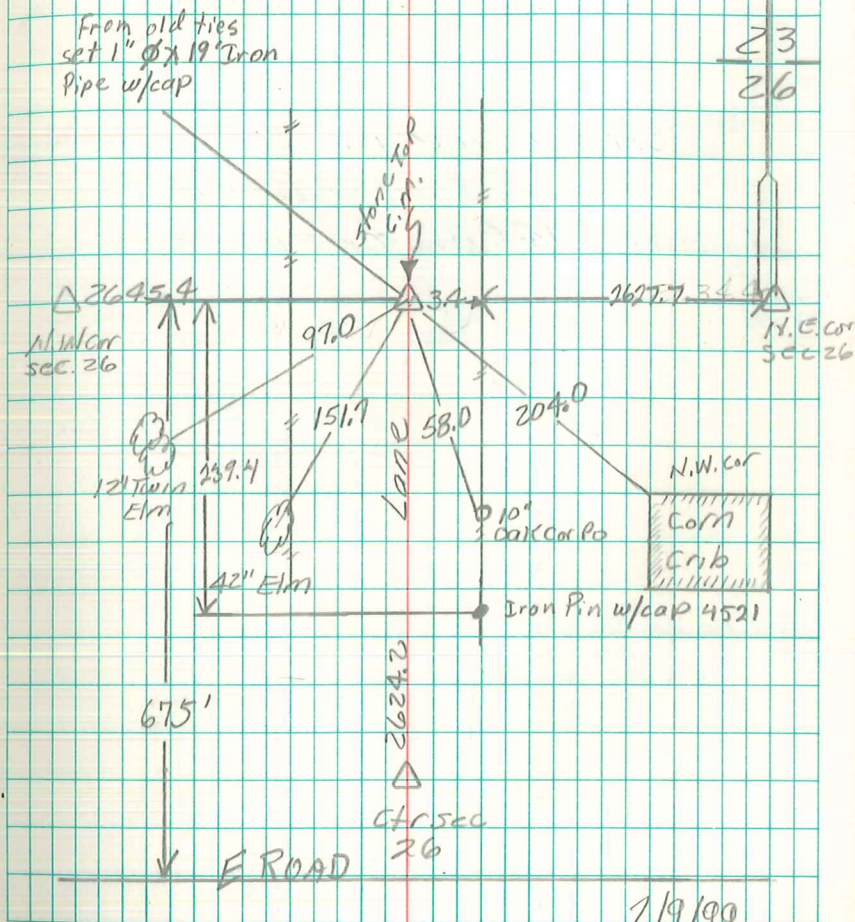 From old ties
set 1" Ø X 19" Iron
Pipe w/cap
23
26
Stone TOP
6"
2645.4
3.4
2627.7
N.W. Cor
Sec. 26
N.E. Cor
Sec 26
97.0
151.7
58.0
204.0
Lane
12" Twin
Elm
239.4
42" Elm
10"
Oak Cor Po
N.W. Cor
Corn
Crib
Iron Pin w/cap 4521
675'
2624.2
Ctr sec
26
E ROAD